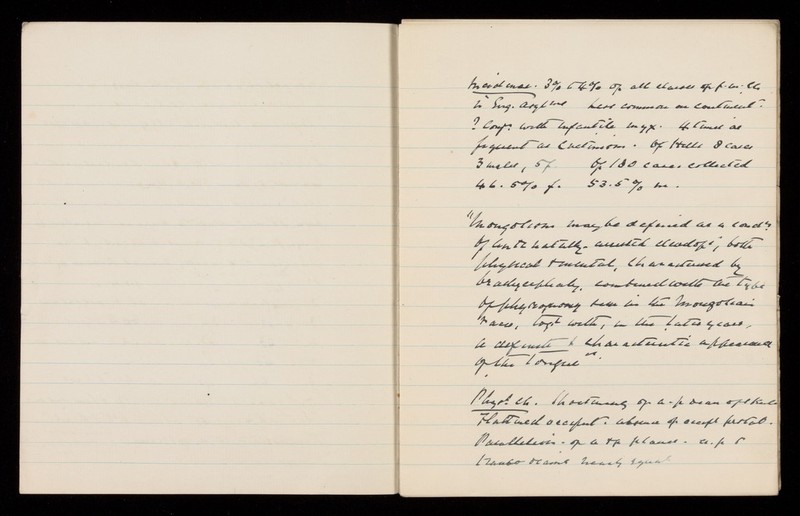 Incidence. 3% to 4% of all classes of f.m. ch
in Eng. asylums less common on continent.
? Conf. with infantile myx. 4 times as
frequent as Cretinism. Of Hills 8 cases
3 males, 5 f. Of 180 cases collected
46.5% f. 53.5% m.
"Mongolism may be defined as a cond.
of arrested develop, both
physical & mental, characterised by
brachycephaly, combined with the type
of physiognomy seen in the Mongolian
race, tog. with, in the later years,
a definite & characteristic appearance
of the tongue"
Phys. ch. Shortening of a-p diam of skull
Flattened occiput. absence of occip protub.
Parallelism of a & p planes. a.p &
transv diams nearly equal